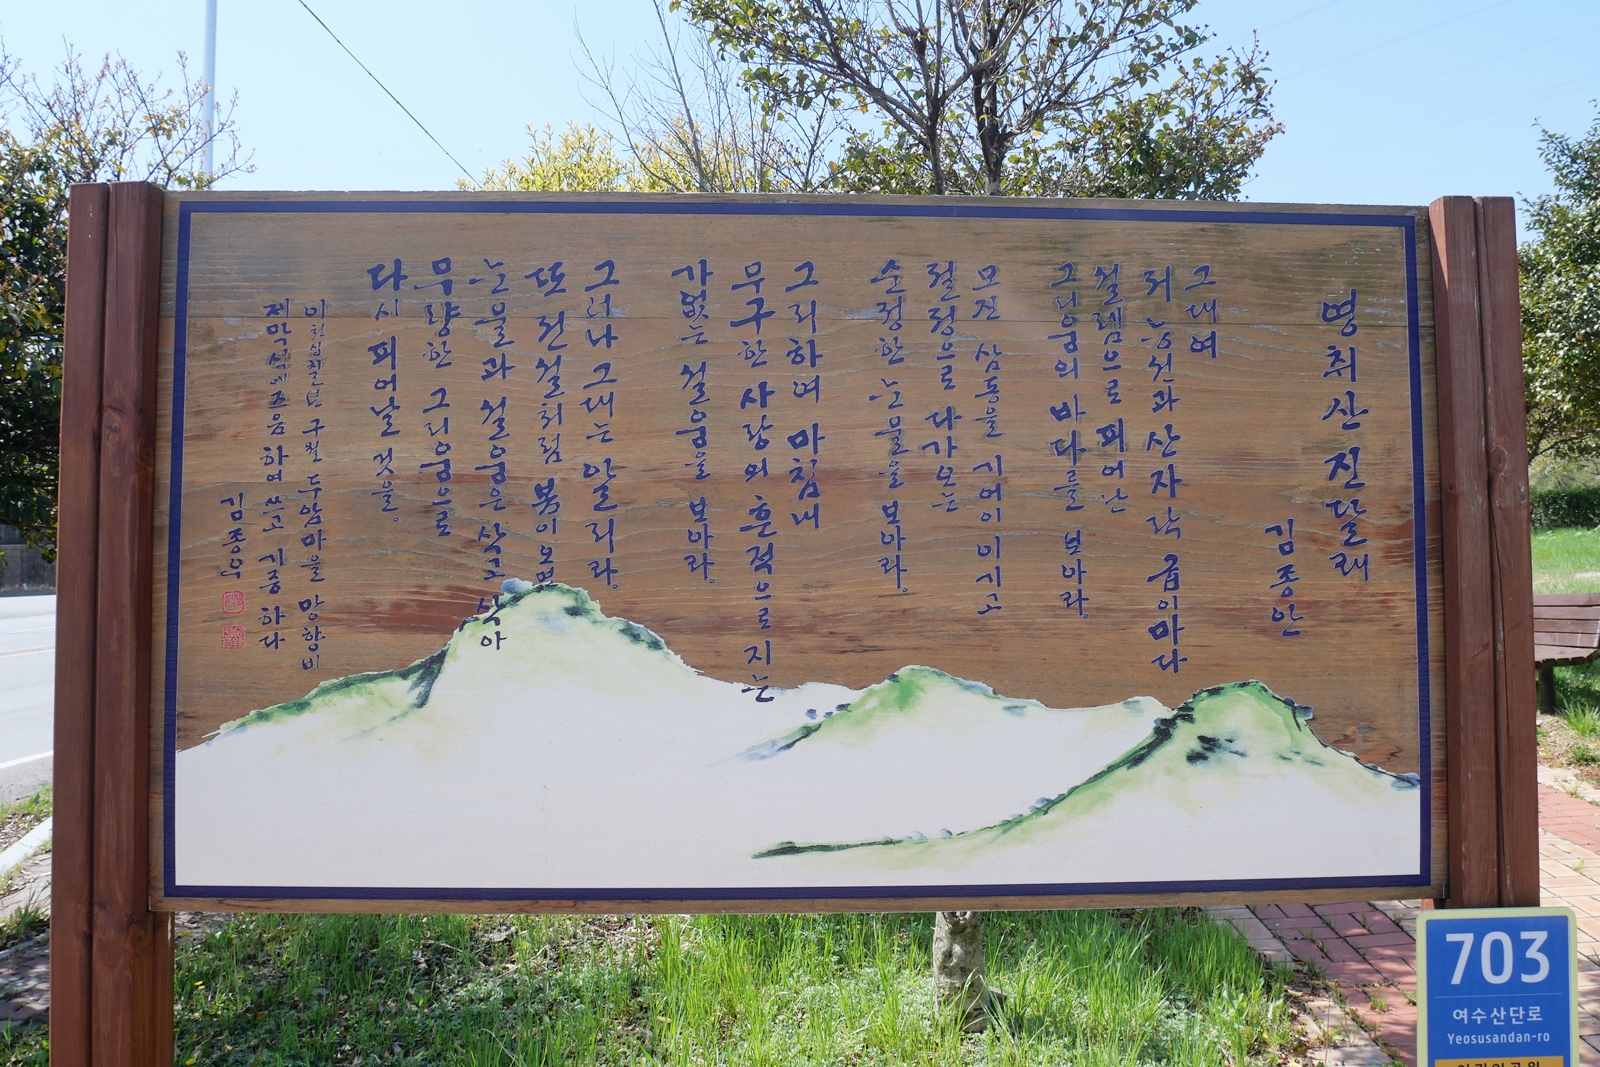 영취산 진달래
김종안
그대여
저 능선과 산자락 굽이마다
설렘으로 피어난
그리움의 바다를 보아라.
모진 삼동을 기어이 이기고
절정으로 다가오는
순정한 눈물을 보아라.
그리하여 마침내
무구한 사랑의 흔적으로 지는
가없는 설움을 보아라.
그러나 그대는 알리라.
또 전설처럼 봄이 오면
눈물과 설움은 삭고 삭아
무량한 그리움으로
다시 피어날 것을.
이천십칠년 구월 두암마을 망향비
제막식에 즈음 하여 쓰고 기증 하다
김종우
703
여수산단로
Yeosusandan-ro